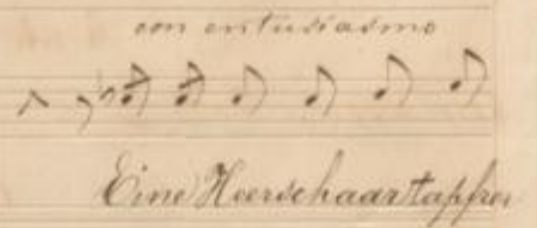 con entusiasmo
Eine Heerschaar tapfrer